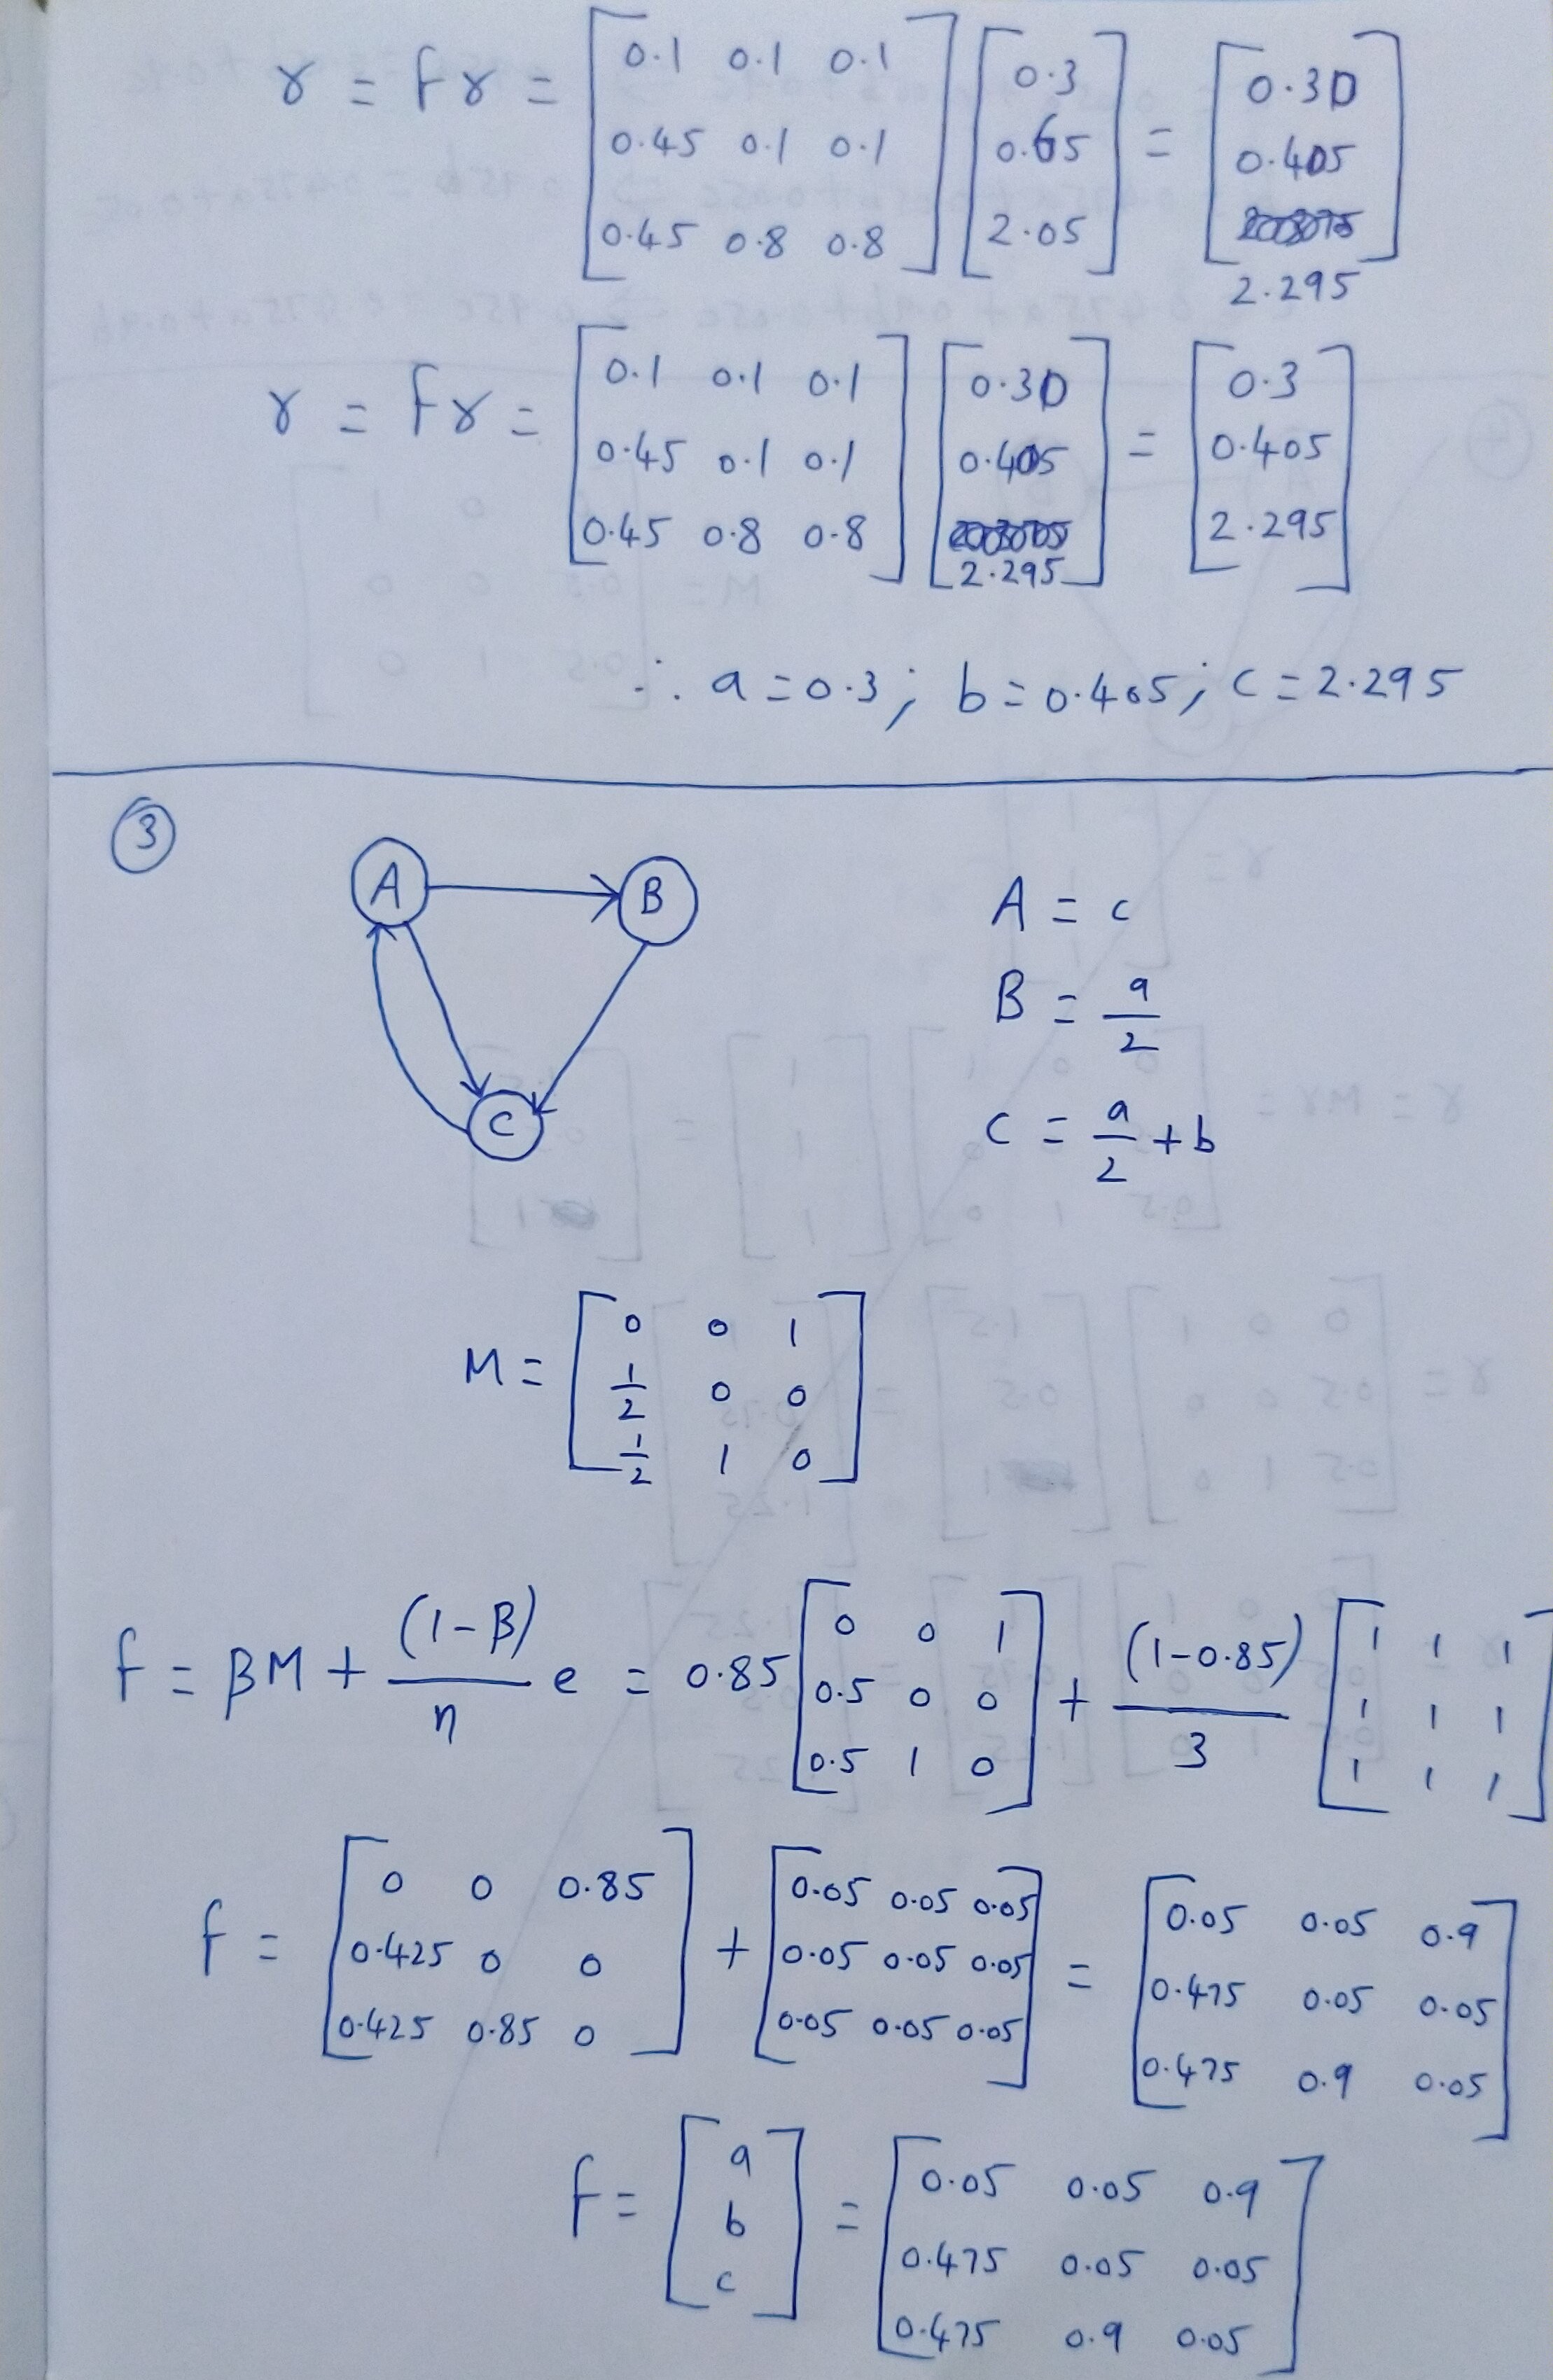 γ = fγ = [0.1 0.1 0.1; 0.45 0.1 0.1; 0.45 0.8 0.8] [0.3; 0.65; 2.05] = [0.30; 0.405; 2.295]
γ = fγ = [0.1 0.1 0.1; 0.45 0.1 0.1; 0.45 0.8 0.8] [0.30; 0.405; 2.295] = [0.3; 0.405; 2.295]
∴ a = 0.3; b = 0.405; c = 2.295
3
A B
C
A = c
B = a/2
c = a/2 + b
M = [0 0 1; 1/2 0 0; 1/2 1 0]
f = βM + (1-β)/n e = 0.85 [0 0 1; 0.5 0 0; 0.5 1 0] + (1-0.85)/3 [1 1 1; 1 1 1; 1 1 1]
f = [0 0 0.85; 0.425 0 0; 0.425 0.85 0] + [0.05 0.05 0.05; 0.05 0.05 0.05; 0.05 0.05 0.05] = [0.05 0.05 0.9; 0.475 0.05 0.05; 0.475 0.9 0.05]
f = [a; b; c] = [0.05 0.05 0.9; 0.475 0.05 0.05; 0.475 0.9 0.05]